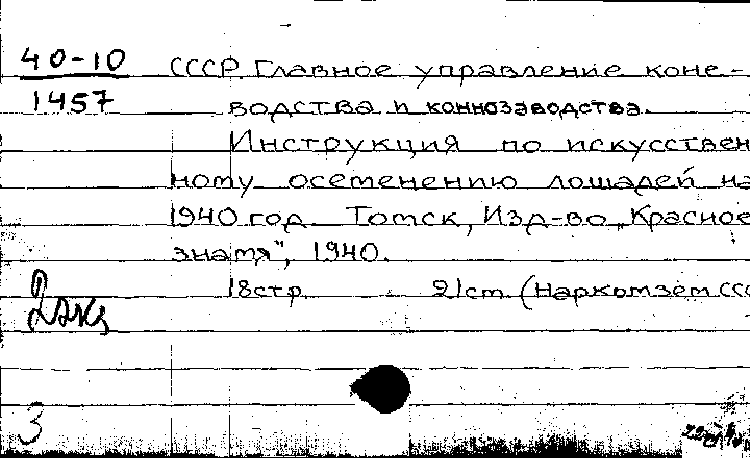 40-10
1457
СССР. Главное управление коне-
водства и коннозаводства.
Инструкция по искусствен
ному осеменению лошадей на
1940 год. Томск, Изд-во „Красное
знамя", 1940.
18стр. 21см. (Наркомзем ССС
2экз
3